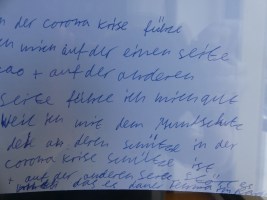 in der corona krise fühle
ich mich auf der einen seite
+ auf der anderen
seite fühle ich mich gut
Weil ich mit dem Mundschutz
deren schütze in der
corona krise schütze ist
+ auf der anderen Seite
das es